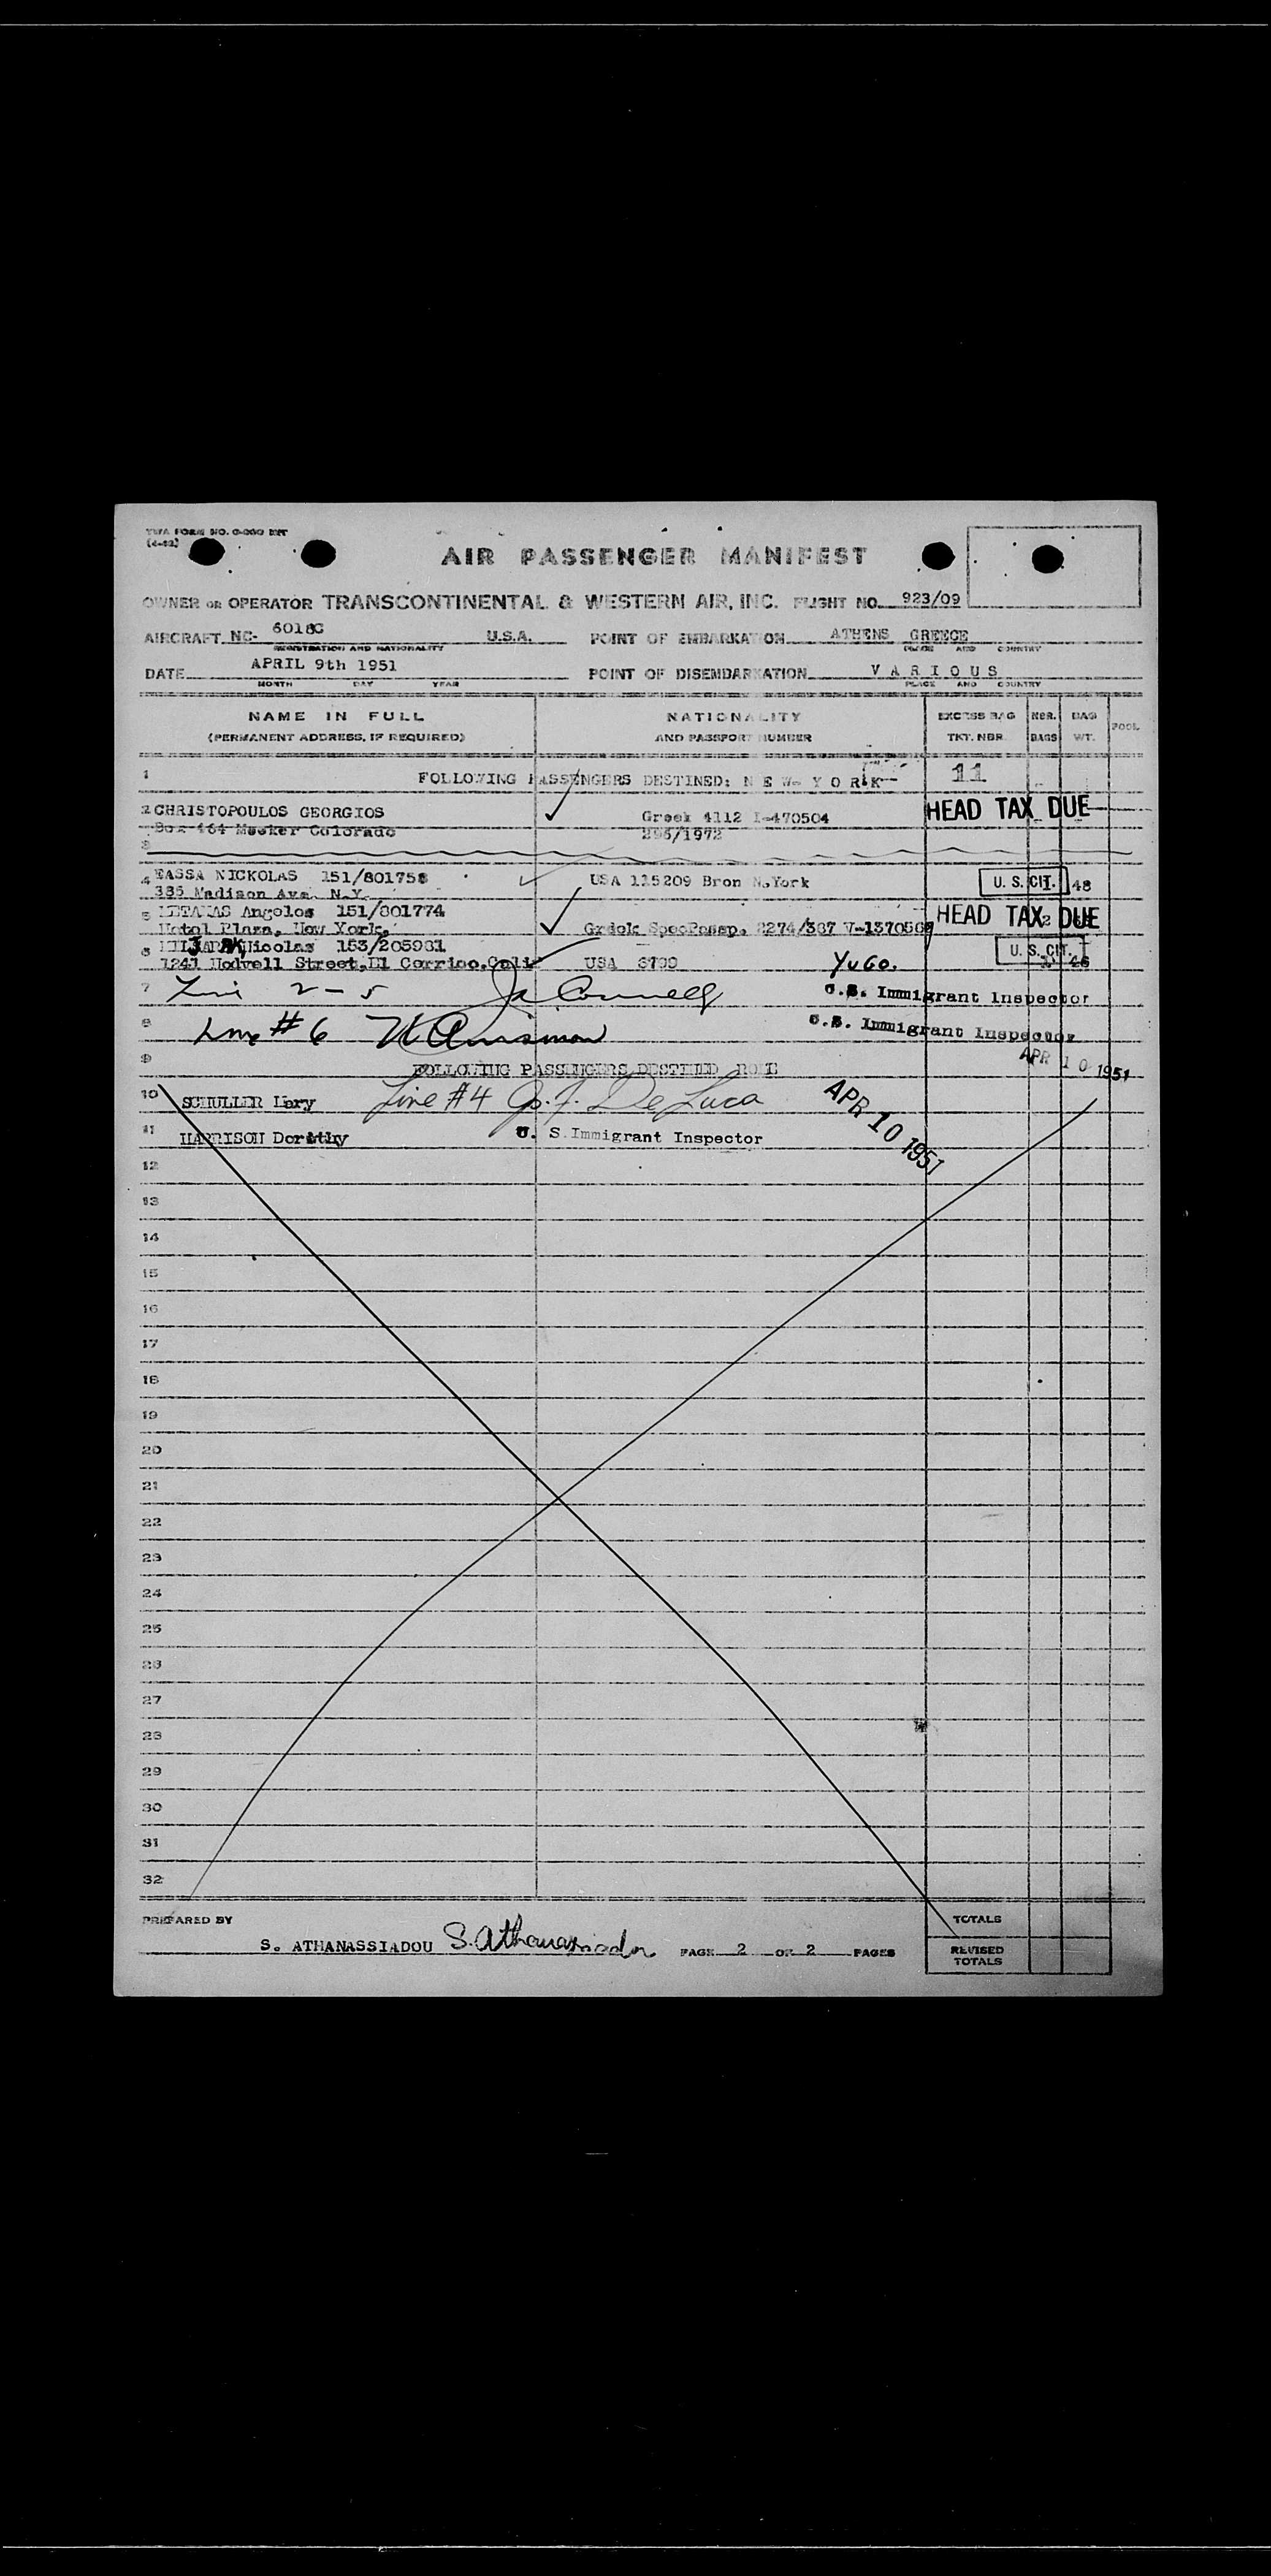 TWA FORM NO.
AIR PASSENGER MANIFEST
OWNER OR OPERATOR TRANSCONTINENTAL & WESTERN AIR, INC. FLIGHT NO. 923/09
AIRCRAFT NC- U.S.A. POINT OF EMBARKATION ATHENS GREECE
REGISTRATION AND NATIONALITY PLACE AND COUNTRY
DATE APRIL 9th 1951 POINT OF DISEMBARKATION VARIOUS
MONTH DAY YEAR PLACE AND COUNTRY
NAME IN FULL NATIONALITY EXCESS BAG NBR. BAG POOL
(PERMANENT ADDRESS, IF REQUIRED) AND PASSPORT NUMBER TKT. NBR. BAGS WT.
1 FOLLOWING PASSENGERS DESTINED: NEW-YORK 11
2 CHRISTOPOULOS GEORGIOS Greek 4112 I-470504 HEAD TAX DUE
Box 464 Meeker Colorado 296/1972
3
4 NICKOLAS USA 115209 Bron N.York U. S. CIT. 48
Madison Ave. N.Y.
5 Angelos 151/801774 HEAD TAX DUE
Hotel Plaza, New York,
6 Nicolas U. S. CIT.
Street, El Cerrito, Cali USA YUGO.
7 Line 2-5 U.S. Immigrant Inspector
8 Line #6 U.S. Immigrant Inspector
9 FOLLOWING PASSENGERS DESTINED ROME APR 10 1951
10 SCHULLER Mary Line #4 De Luca APR 10 1951
11 HARRISON Dorothy U. S. Immigrant Inspector
12
13
14
15
16
17
18
19
20
21
22
23
24
25
26
27
28
29
30
31
32
PREPARED BY TOTALS
S. ATHANASSIADOU S. Athanassiadou PAGE 2 OF 2 PAGES REVISED
TOTALS